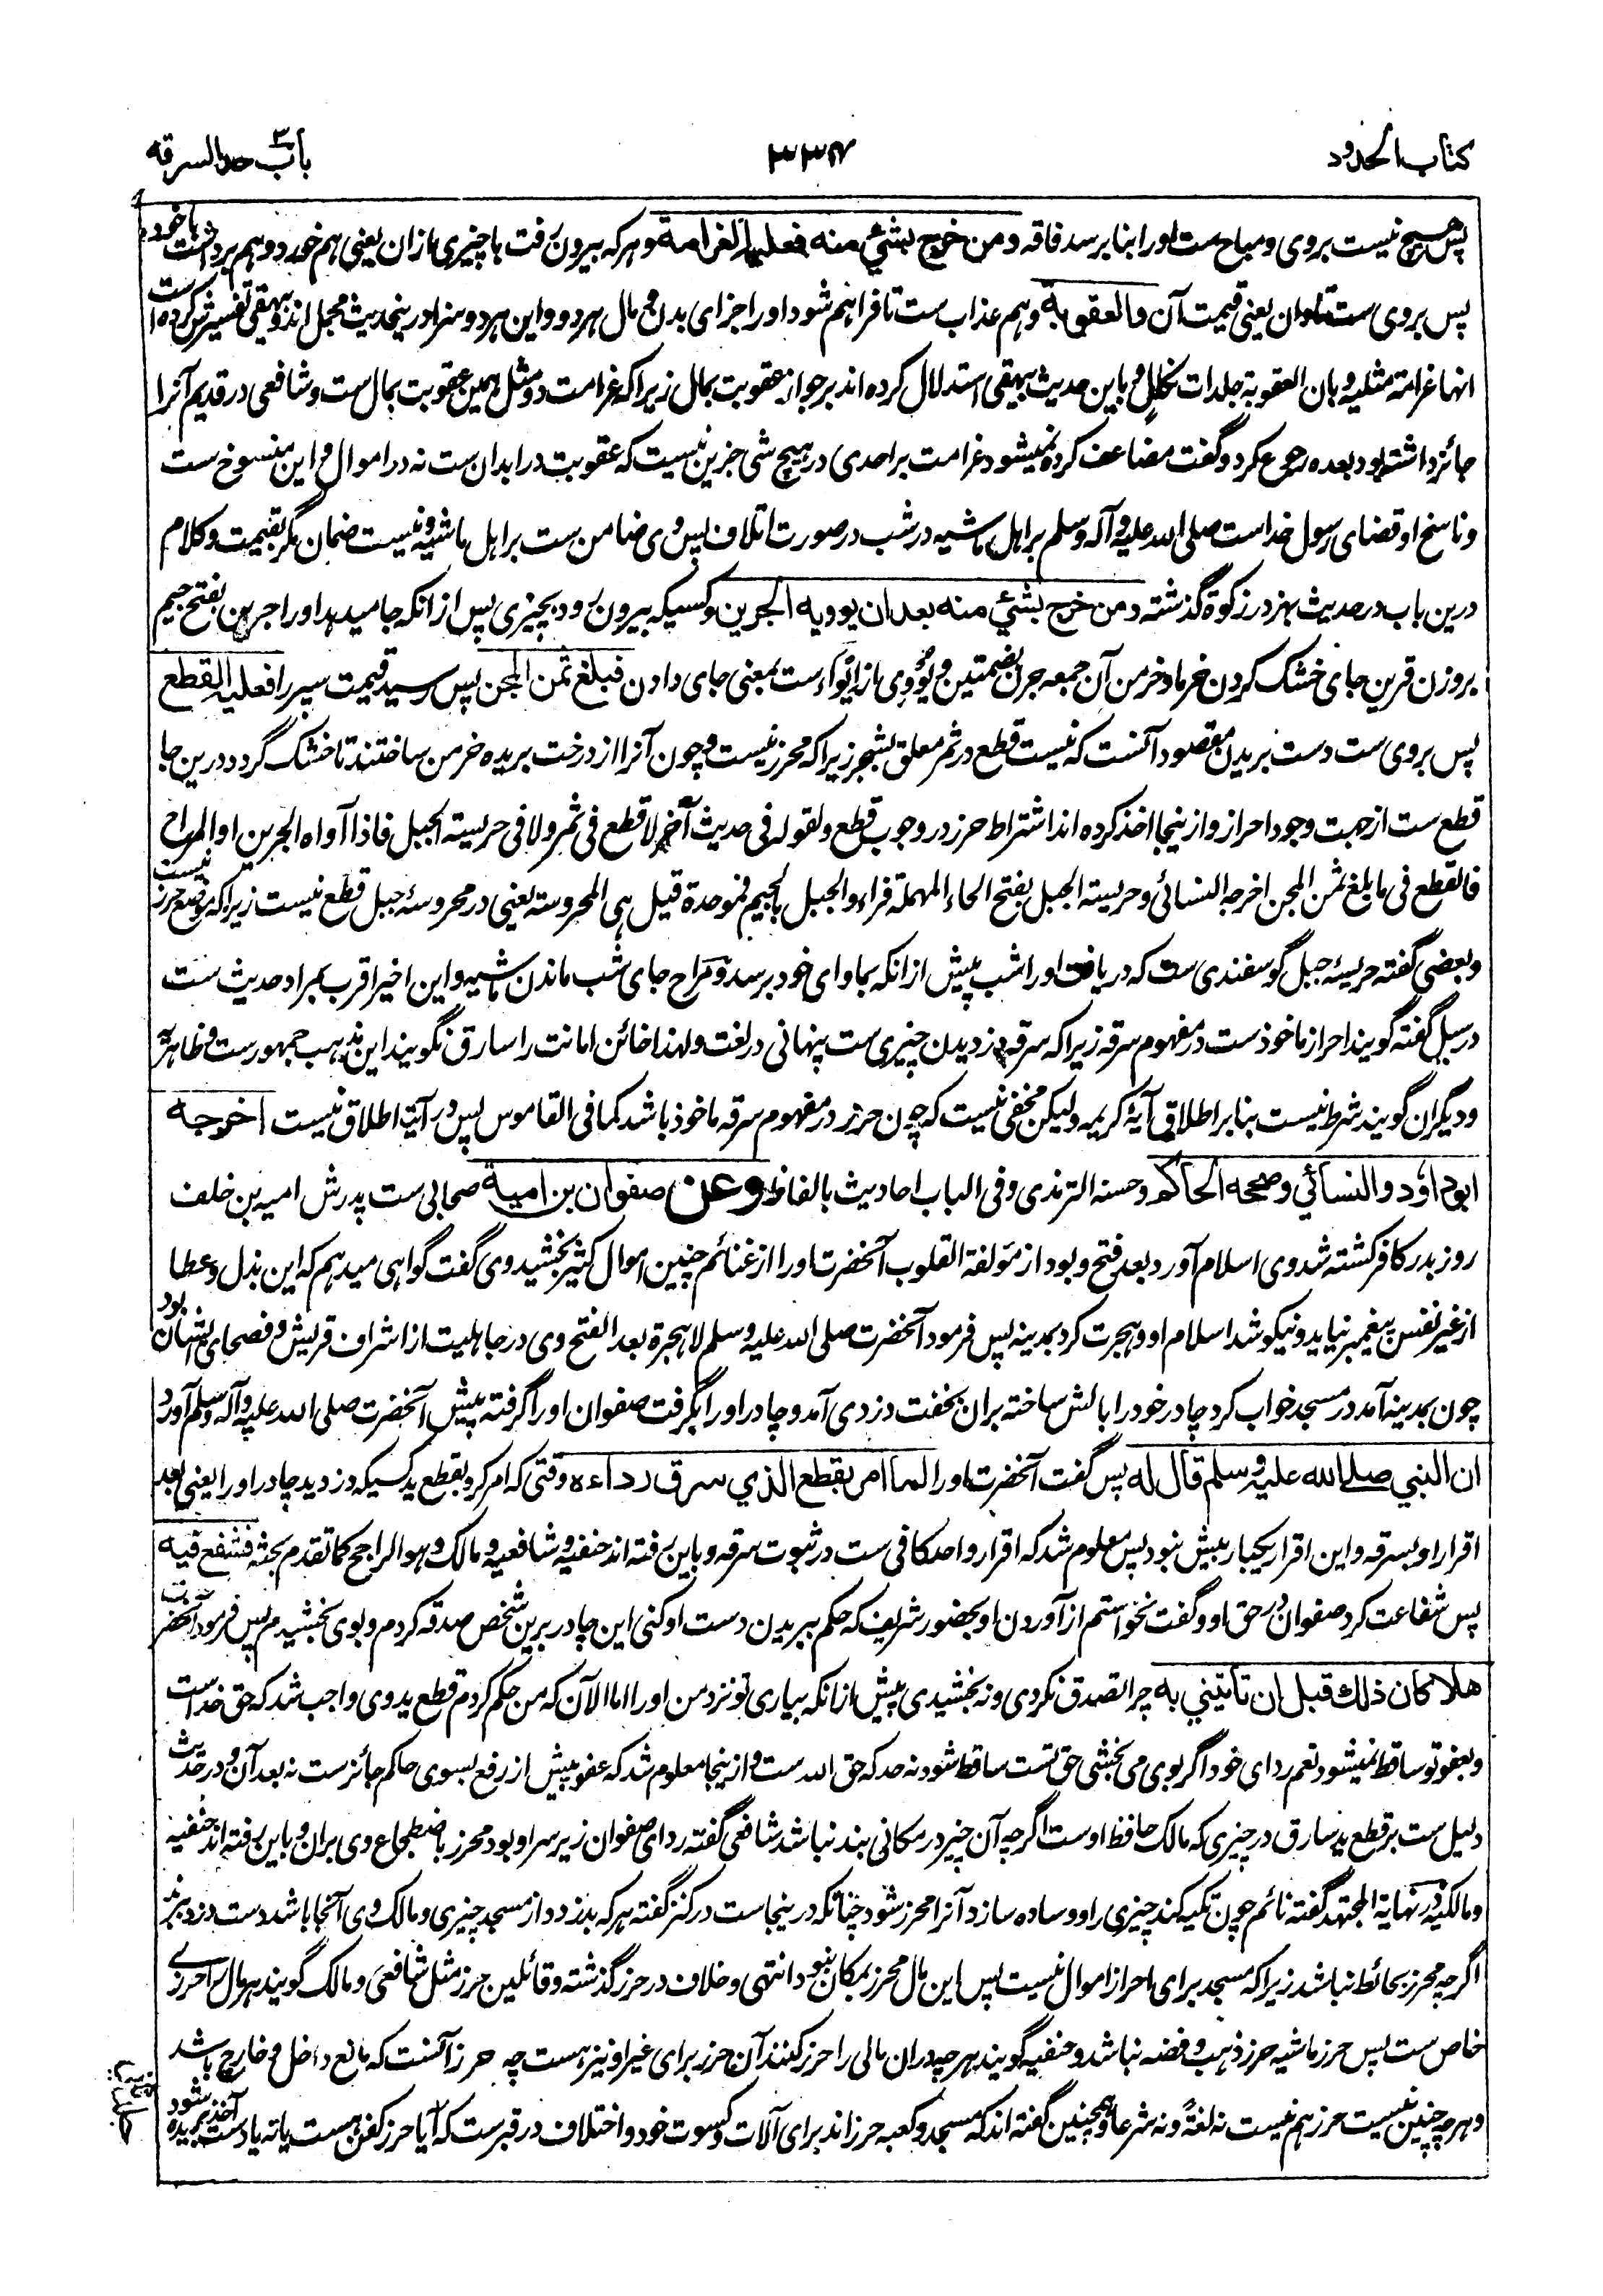 کتاب الحدود
۳۳۴
باب حد السرقه
پس هیچ نیست بروی و مباح ست او را بنا بر سد فاقه و من خرج بشئ منه فعلیه الغرامة و هر که بیرون رفت با چیزی ازان یعنی هم خورد و هم برداشت با خود
پس بروی ست تاوان یعنی قیمت آن والعقوبة و هم عذاب ست تا فراهم شود او را جزای بدن و مال هر دو و این هر دو سزا درینحدیث مجمل اند و بیهقی تفسیرش کرده است
انها غرامة مثلیه وبان العقوبة جلدات نکال و باین حدیث بیهقی استدلال کرده اند بر جواز عقوبت بمال زیرا که غرامت دو مثل همین عقوبت بمال ست و شافعی در قدیم آنرا
جائز داشته بود بعده رجوع کرد و گفت مضاعف کرده نمیشود غرامت بر احدی در هیچ شی جز این نیست که عقوبت در ابدان ست نه در اموال و این منسوخ ست
و ناسخ او قضای رسول خداست صلی الله علیه و آله وسلم بر اهل ماشیه در شب در صورت اتلاف پس وی ضامن ست بر اهل ماشیه و نیست ضمان مگر بقیمت و کلام
درین باب در حدیث بهز در زکوة گذشته و من خرج بشئ منه بعد ان یوویه الجرین و کسیکه بیرون رود بچیزی پس از انکه جا میدهد او را جرین بفتح جیم
بروزن قرین جای خشک کردن خرما و خرمن آن جمعه جرن بضمتین و یؤوی از ایواء ست بمعنی جای دادن فبلغ ثمن المجن پس رسید قیمت سپر را فعلیه القطع
پس بروی ست دست بریدن مقصود آنست که نیست قطع در ثمر معلق بشجر زیرا که محرز نیست و چون آنرا از درخت بریده خرمن ساختند تا خشک گردد درین جا
قطع ست از جهت وجود احراز و ازینجا اخذ کرده اند اشتراط حرز در وجوب قطع ولقوله فی حدیث آخر لا قطع فی ثمر ولا فی حریسة الجبل فاذا آواه الجرین او المراح
فالقطع فی ما بلغ ثمن المجن اخرجه النسائی و حریسة الجبل بفتح الحاء المهملة فراء والجبل بالجیم فموحدة قیل هی المحروسة یعنی در محروسهٔ جبل قطع نیست زیرا که موضع حرز نیست
و بعضی گفته حریسهٔ جبل گوسفندی ست که دریافت او را شب پیش از انکه بماوای خود برسد و مراح جای شب ماندن ماشیه و این اخیر اقرب بمراد حدیث ست
در سبل گفته گویند احراز ماخوذست در مفهوم سرقه زیرا که سرقه دزدیدن چیزی ست پنهانی در لغت ولهذا خائن امانت را سارق نگویند این مذهب جمهورست و ظاهریه
و دیگران گویند شرط نیست بنا بر اطلاق آیهٔ کریمه ولیکن مخفی نیست که چون حرز در مفهوم سرقه ماخوذ باشد کما فی القاموس پس در آیة اطلاق نیست اخرجه
ابوداؤد والنسائی وصححه الحاکم وحسنه الترمذی وفی الباب احادیث بالفاظ وعن صفوان بن امیة صحابی ست پدرش امیه بن خلف
روز بدر کافر کشته شد وی اسلام آورد بعد فتح و بود از مؤلفة القلوب آنحضرت او را از غنائم حنین اموال کثیر بخشید وی گفت گواهی میدهم که این بذل و عطا
از غیر نفس پیغمبر نیاید و نیکو شد اسلام او و هجرت کرد بمدینه پس فرمود آنحضرت صلی الله علیه وسلم لا هجرة بعد الفتح وی در جاهلیت از اشراف قریش و فصحای ایشان بود
چون بمدینه آمد در مسجد خواب کرد چادر خود را بالش ساخته بران بخفت دزدی آمد و چادر او را بگرفت صفوان او را گرفته پیش آنحضرت صلی الله علیه و آله وسلم آورد
ان النبی صلی الله علیه وسلم قال له پس گفت آنحضرت او را لما امر بقطع الذی سرق رداءه وقتی که امر کرد بقطع ید کسیکه دزدید چادر او را یعنی بعد
اقرار او بسرقه و این اقرار یکبار بیش نبود پس معلوم شد که اقرار واحد کافی ست در ثبوت سرقه و باین رفته اند حنفیه و شافعیه و مالک وهو الراجح کما تقدم بحثه فشفع فیه
پس شفاعت کرد صفوان در حق او و گفت نخواستم از آوردن او بحضور شریف که حکم ببریدن دست او کنی این چادر برین شخص صدقه کردم و بوی بخشیدم پس فرمود آنحضرت
هلا کان ذلک قبل ان تأتینی به چرا تصدق نکردی و نه بخشیدی پیش از انکه بیاری تو نزد من او را اما الآن که من حکم کردم قطع ید وی واجب شد که حق خداست
و بعفو تو ساقط نمیشود نعم ردای خود اگر بوی می بخشی حق تست ساقط شود نه حد که حق الله ست و ازینجا معلوم شد که عفو پیش از رفع بسوی حاکم جائزست نه بعد آن و در حدیث
دلیل ست بر قطع ید سارق در چیزی که مالک حافظ اوست اگر چه آن چیز در مکانی بند نباشد شافعی گفته ردای صفوان زیر سر او بود محرز باضطجاع وی بران و باین رفته اند حنفیه
و مالکیه در نهایة المجتهد گفته نائم چون تکیه کند چیزی را و وساده سازد آنرا محرز شود چنانکه درینجاست در کنز گفته هر که بدزدد از مسجد چیزی و مالک وی آنجا باشد دست دزد ببرند
اگر چه محرز بحائط نباشد زیرا که مسجد برای احراز اموال نیست پس این مال محرز بمکان نبود انتهی و خلاف در حرز گذشته و قائلین حرز مثل شافعی و مالک گویند هر مال را حرزی
خاص ست پس حرز ماشیه حرز ذهب و فضه نباشد و حنفیه گویند هر چه دران مالی را حرز کنند آن حرز برای غیر او نیز هست چه حرز آنست که مانع داخل و خارج باشد
و هر چه چنین نیست حرز هم نیست نه لغةً و نه شرعا و همچنین گفته اند که مسجد و کعبه حرز اند برای آلات و کسوت خود و اختلاف در قبرست که آیا حرز کفن هست یا نه یا دست آخذ بریده شود